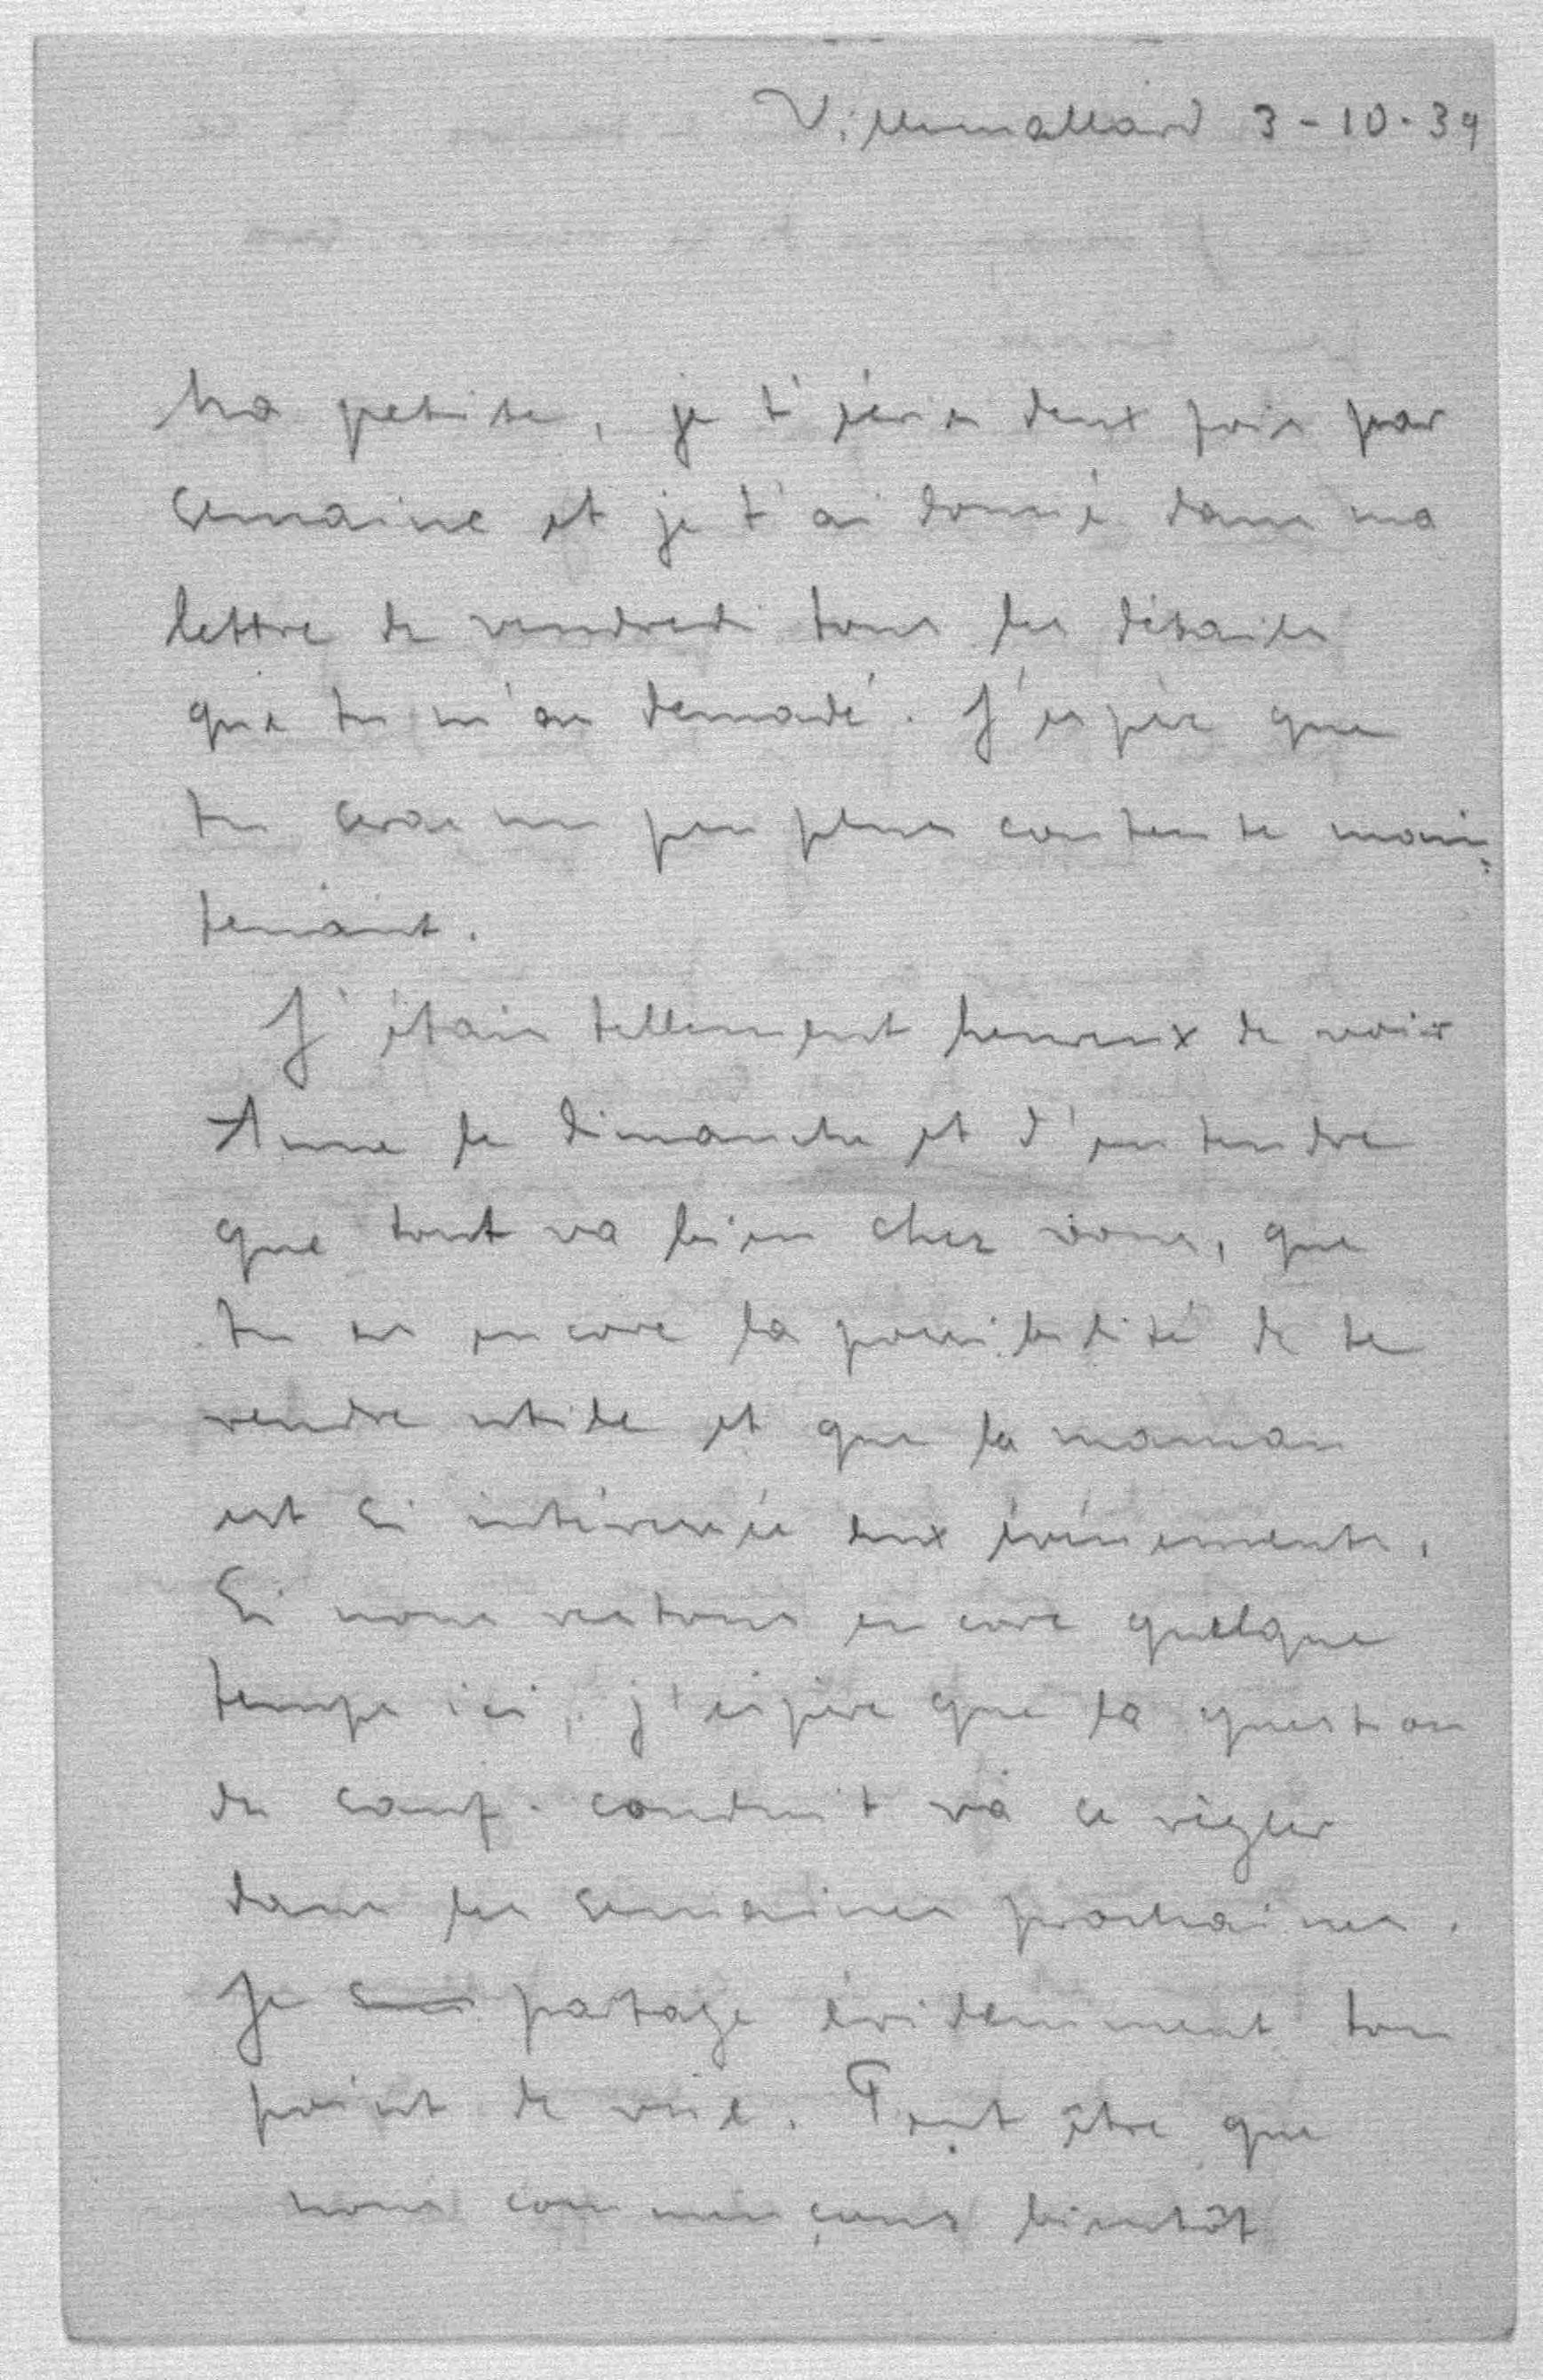 Villemallard 3-10-39
Ma petite, je t'écris deux fois par
semaine et je t'ai donné dans ma
lettre de vendredi tous les détails
que tu m'as demadé. J'espère que
tu seras un peu plus contente main-
tenant.
J'étais tellement heureux de voir
Anne le dimanche et d'entendre
que tout va bien chez vous, que
tu as encore la possibilité de te
rendre utile et que la maman
est si intéressée aux événements.
Si nous restons encore quelque
temps ici, j'espère que la question
de sauf-conduit va se régler
dans les semaines prochaines.
Je partage évidemment ton
point de vue. Peut être que
nous commençons bientôt